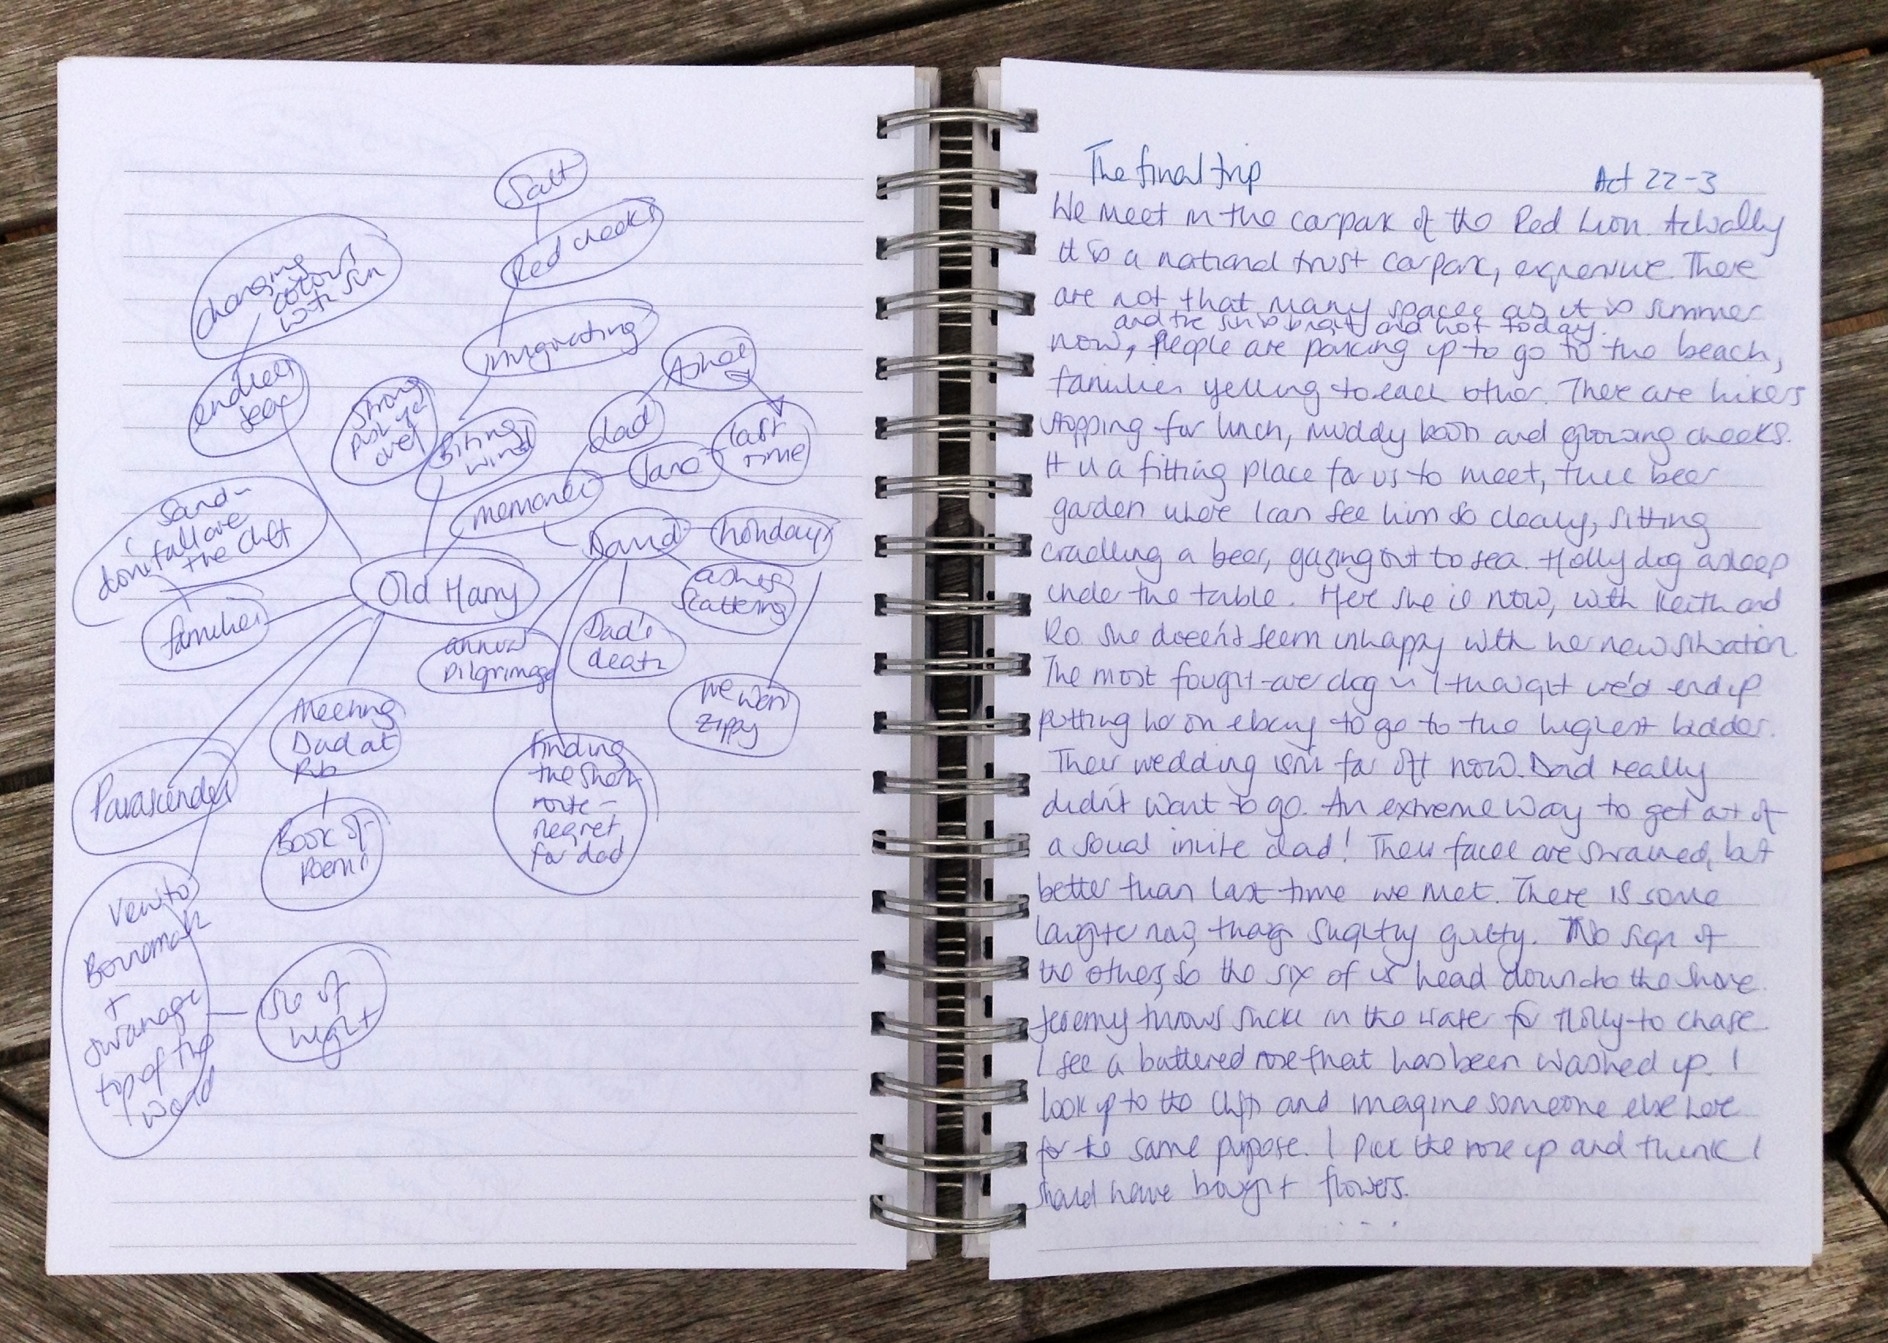 Salt
Red cheeks
changing
colours
with sun
invigorating
Ashes
endless
sea
strong
push you
over
Biting
wind
dad
last
time
memories
Sand -
don't fall over
the cliff
David
holidays
Old Harry
ashes
scattering
families
annual
pilgrimage
Dad's
death
Meeting
Dad at
Pub
we were
Zippy
finding
the short
route -
regret
for dad
Parascenders
Book of
Poems
View to
Bournemouth
+
Swanage
top of the
world
Isle of
Wight
The final trip Act 22-3
We meet in the carpark of the Red Lion. Actually
it is a national trust carpark, expensive. There
are not that many spaces as it is summer
and the sun is bright and hot today.
now, People are parking up to go to the beach,
families yelling to each other. There are hikers
stopping for lunch, muddy boots and glowing cheeks.
It is a fitting place for us to meet, the beer
garden where I can see him so clearly, sitting
cradling a beer, gazing out to sea. Holly dog asleep
under the table. Here she is now, with Keith and
Ro. She doesn't seem unhappy with her new situation.
The most fought-over dog I thought we'd end up
putting her on ebay to go to the highest bidder.
Their wedding isn't far off now. Dad really
didn't want to go. An extreme way to get out of
a social invite dad! Their faces are strained, but
better than last time we met. There is some
laughter now, though slightly guilty. No sign of
the others, so the six of us head down to the shore.
Jeremy throws sticks in the water for Holly to chase.
I see a battered rose that has been washed up. I
look up to the cliffs and imagine someone else here
for the same purpose. I pick the rose up and think I
should have bought flowers.
. . . .